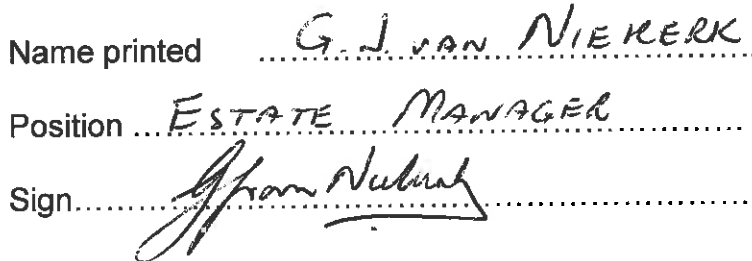 Name printed ..........G. J. VAN NIEKERK
Position ...ESTATE MANAGER..........
Sign..........GJ van Niekerk..........